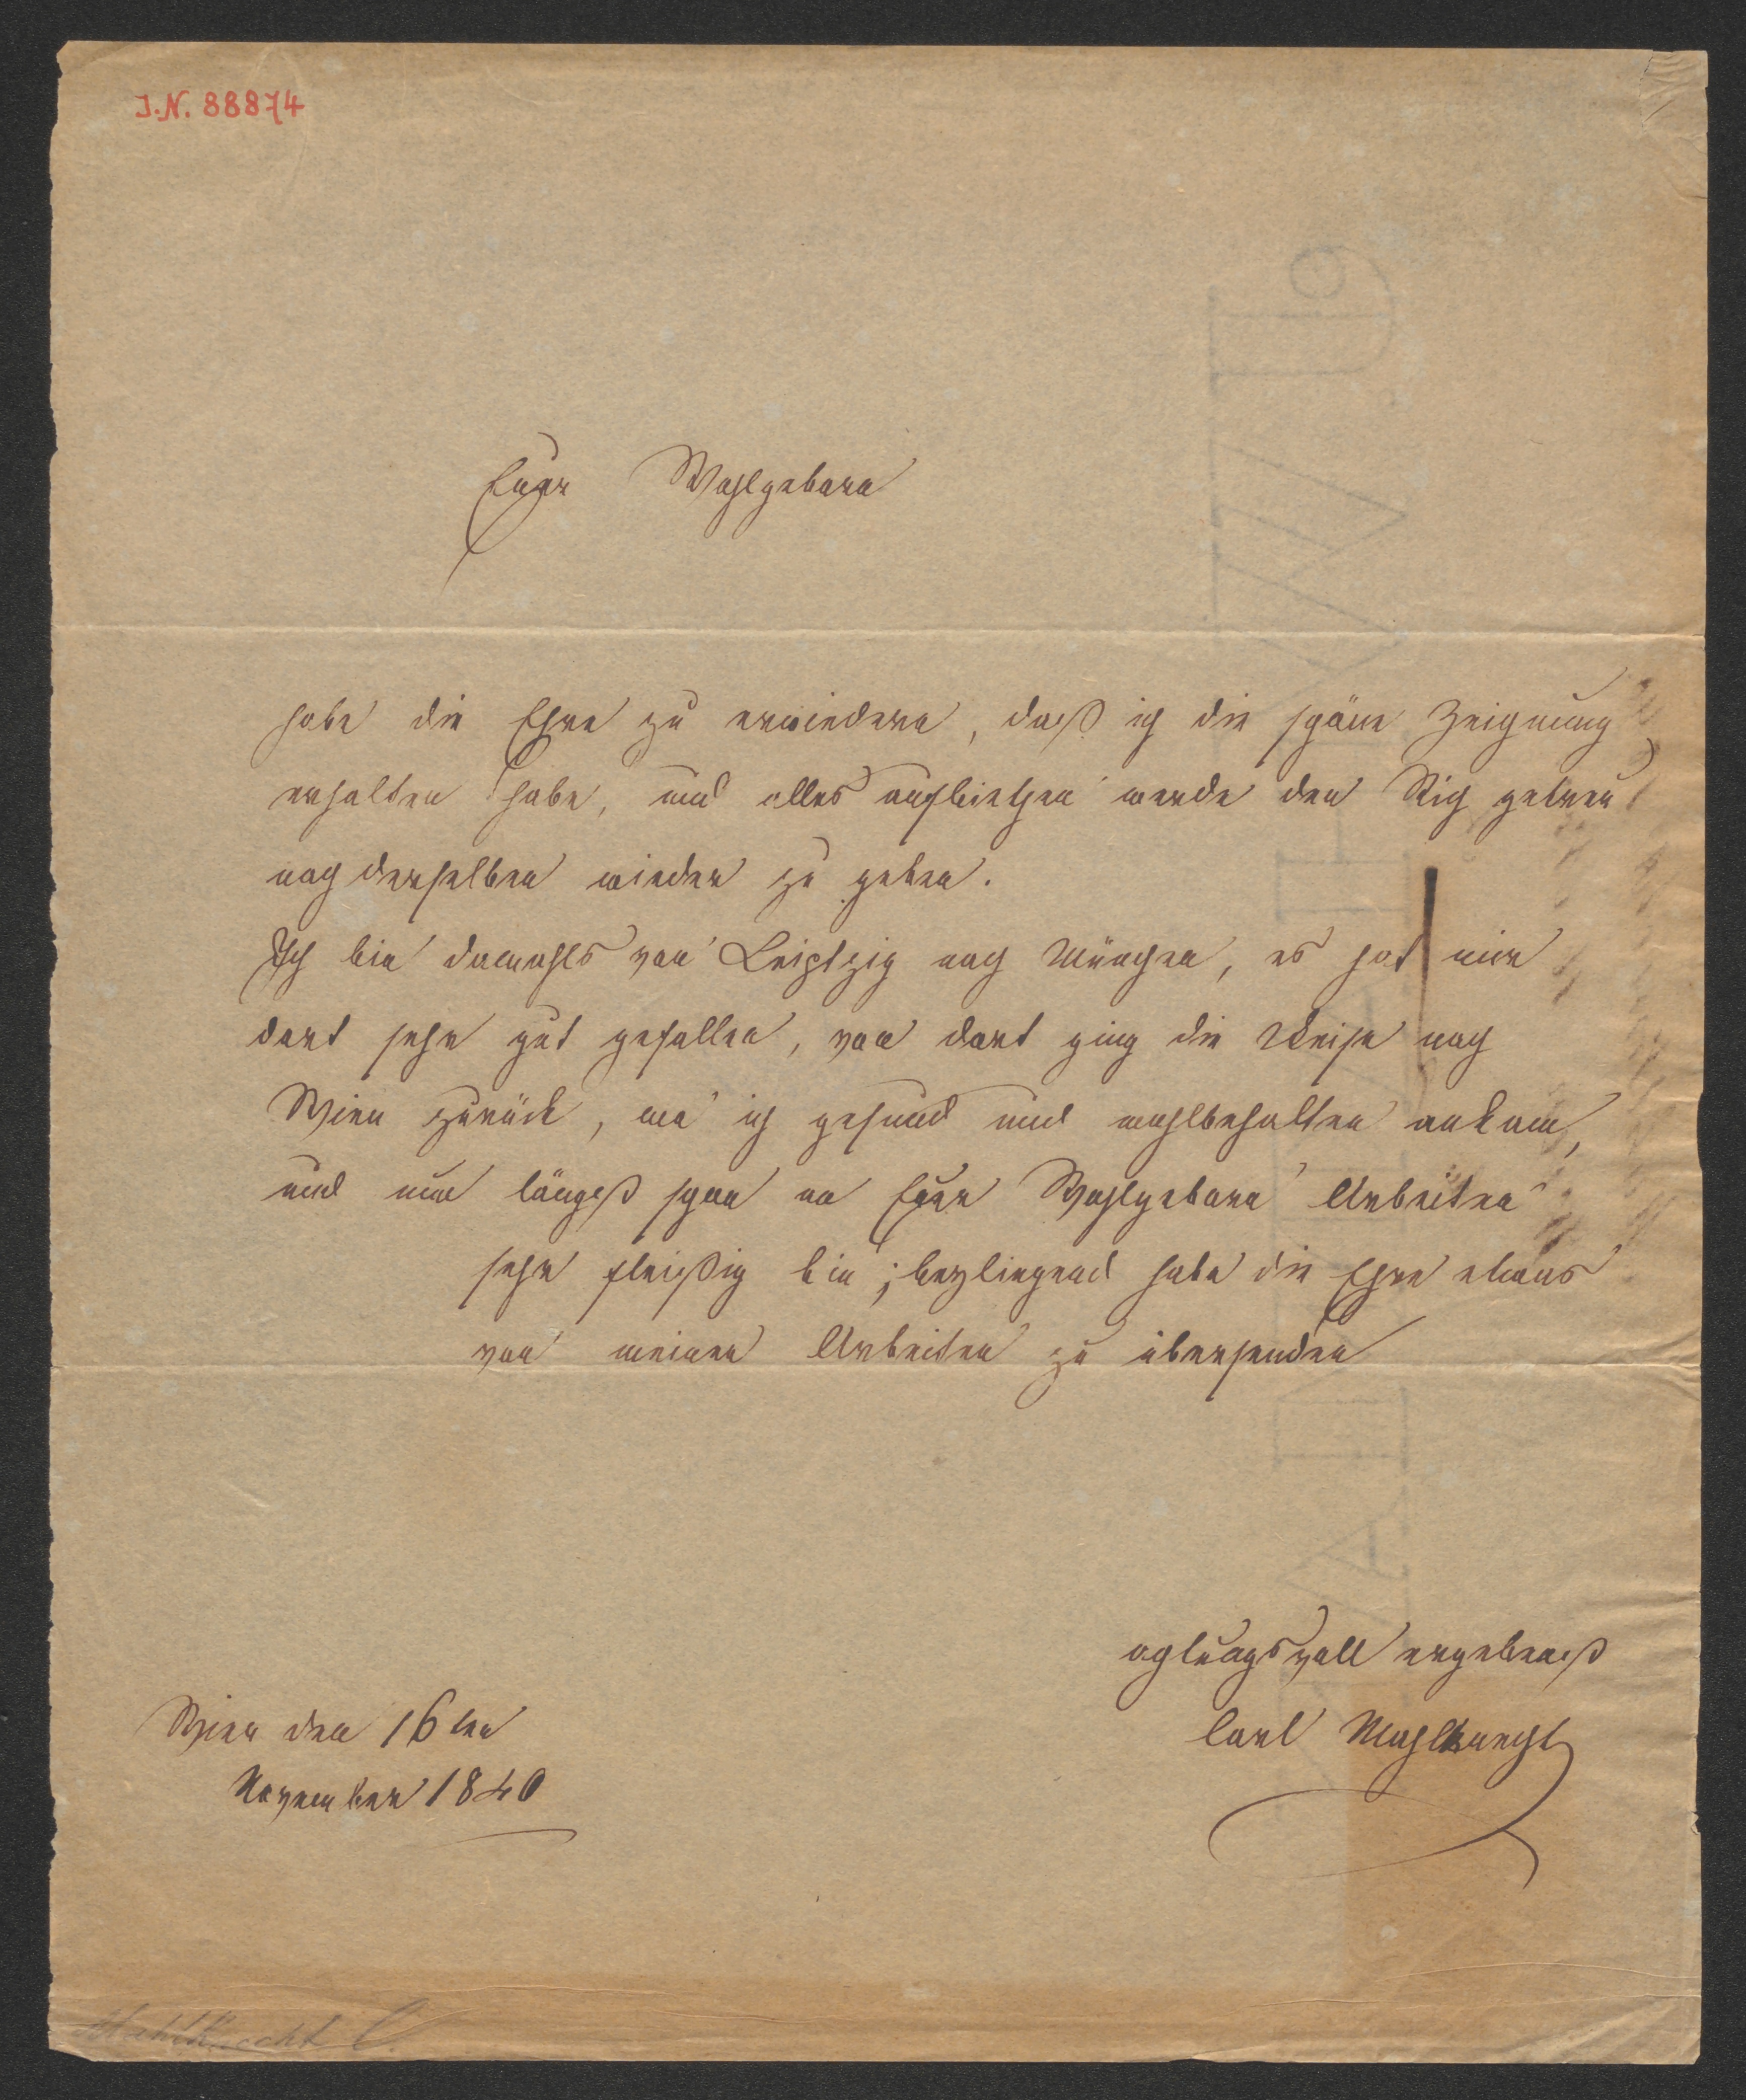 J.N. 88874
Euer Wohlgeborn
habe die Ehre zu erwiedern, daß ich die schöne Zeichnung
erhalten habe, und alles aufbiethen werde den Stich getreu
nach derselben wieder zu geben.
Ich bin damahls von Leiptzig nach München, es hat mir
dort sehr gut gefallen, von dort ging die Reise nach
Wien zurück, wo ich gesund und wohlbehalten ankam,
und nun längst schon an Euer Wohlgeborn Arbeiten
sehr fleißig bin; beyliegend habe die Ehre etwas
von meinen Arbeiten zu übersenden
achtungsvoll ergebenst
Carl Mahlknecht
Wien den 16ten
November 1840
Mahlknecht C.